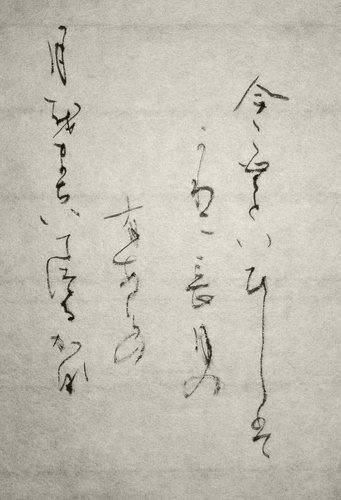 今こむといひしは
かりに長月の
有あけの
月をまちいてつるかな